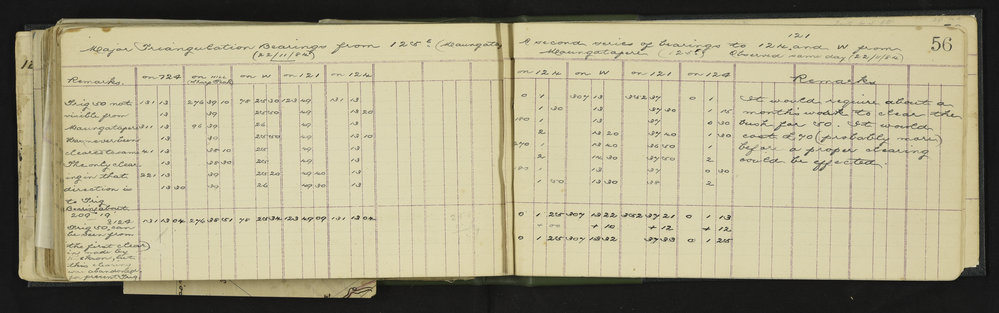 Major Triangulation Bearings from 125c (Maungatap
(22/11/84)
Remarks. on 724 on on W on 121 on 124
Trig 50 not 131 13 276 39 10 78 25 30 123 49 131 13
visible from 13 39 25 50 49 13 20
Maungatapere 311 13 96 39 26 49 13
13 39 25 50 49 13 10
41 13 38 50 25 49 13
The only clear 13 38 30 25 49 13
ing in that 221 13 39 25 20 49 40 13
direction is 13 30 39 26 49 30 13
to Trig
Bearing about
209° 19
131 13 04 276 38 51 78 25 34 123 49 09 131 13 04
Trig 50, can
be seen from
the first clear)
in made by
but
this clearing
was abandoned
for present Trig
121
56
A second series of bearings to 124 and W from
Maungatapere (125c) Observed same day (22/11/84)
on 124 on W on 121 on 124 Remarks
0 1 307 13 352 37 0 1 It would require about a
1 30 13 37 30 1 15 months work to clear the
180 1 13 37 0 30 bush for 50. It would
2 13 20 37 40 1 30 cost £70 (probably more)
270 1 13 40 36 50 1 before a proper clearing
2 14 30 37 50 2 could be effected
1 13 37 0 30
1 50 13 30 38 2
0 1 25 307 13 22 352 37 21 0 1 13
+ 00 + 10 + 12 + 12
0 1 25 307 13 32 37 33 0 1 25